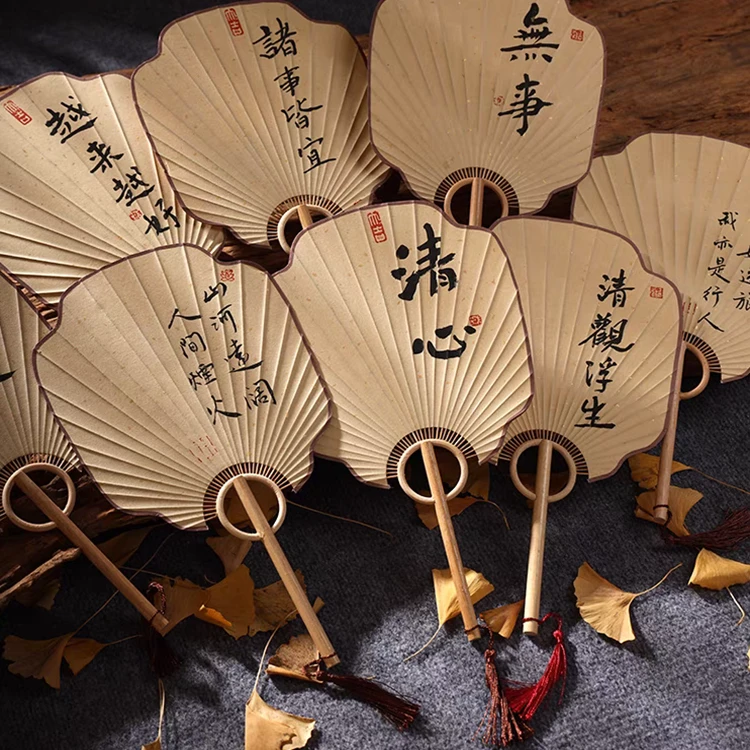 大吉
越来越好
大吉
諸事皆宜
無事
山河遠阔
人間煙火
大吉
清心
清觀浮生
我亦是行人